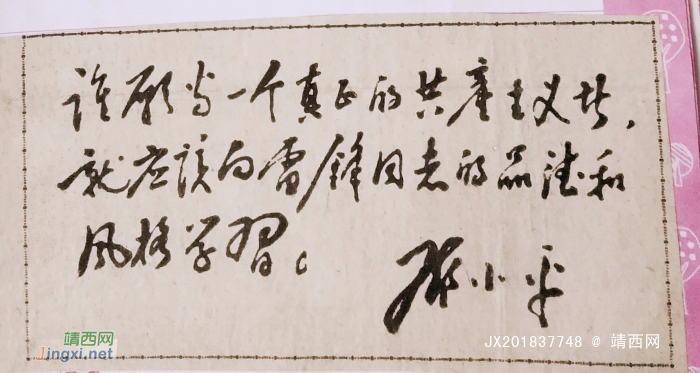 谁愿当一个真正的共产主义者，
就应该向雷锋同志的品德和
风格学习。
邓小平
靖西网
Jingxi.net
JX201837748 @ 靖西网